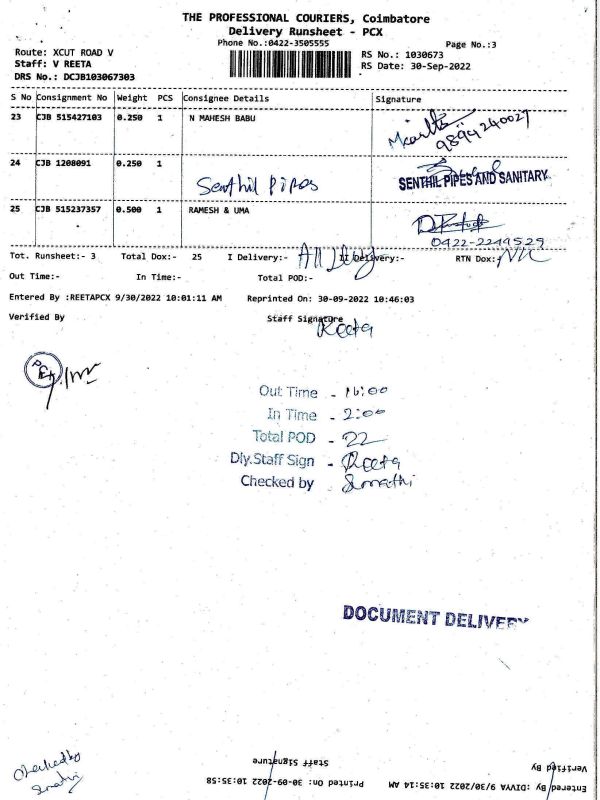 THE PROFESSIONAL COURIERS, Coimbatore
Delivery Runsheet - PCX
Phone No.:0422-3505555
Page No.:3
Route: XCUT ROAD V
Staff: V REETA
DRS No.: DCJB103067303
RS No.: 1030673
RS Date: 30-Sep-2022
S No Consignment No Weight PCS Consignee Details Signature
23 CJB 515427103 0.250 1 N MAHESH BABU
9894240027
24 CJB 1208091 0.250 1
Senthil Pipes
SENTHIL PIPES AND SANITARY
25 CJB 515237357 0.500 1 RAMESH & UMA
0422-2249529
Tot. Runsheet:- 3 Total Dox:- 25 I Delivery:- All Dlvy II Delivery:- RTN Dox:- Nil
Out Time:- In Time:- Total POD:-
Entered By :REETAPCX 9/30/2022 10:01:11 AM Reprinted On: 30-09-2022 10:46:03
Verified By Staff Signature
Reeta
Out Time - 16:00
In Time - 2:00
Total POD - 22
Dly.Staff Sign - Reeta
Checked by Sumathi
DOCUMENT DELIVERY
Checked by
Sumathi
Verified By Staff Signature
Entered By :DIVVA 9/30/2022 10:35:14 AM Printed On: 30-09-2022 10:35:58